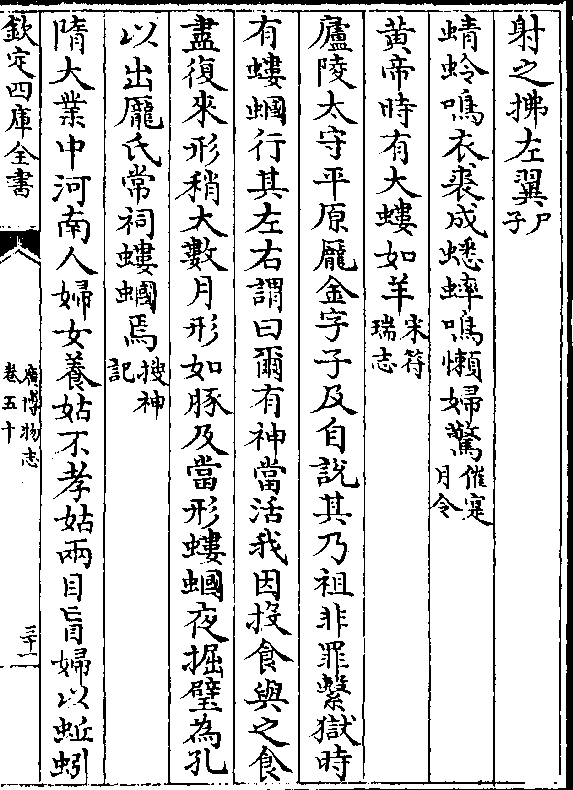 射之拂左翼尸子
蜻蛉鳴衣裘成蟋蟀鳴懶婦驚催寔月令
黄帝時有大螻如羊宋符瑞志
廬陵太守平原龎企字子及自說其乃祖非罪繫獄時
有螻蟈行其左右謂曰爾有神當活我因投食與之食
盡復來形稍大數月形如豚及當形螻蟈夜掘壁為孔
以出龎氏常祠螻蟈焉搜神記
隋大業中河南人婦女養姑不孝姑兩目盲婦以蚯蚓
欽定四庫全書
廣博物志
卷五十
三十二